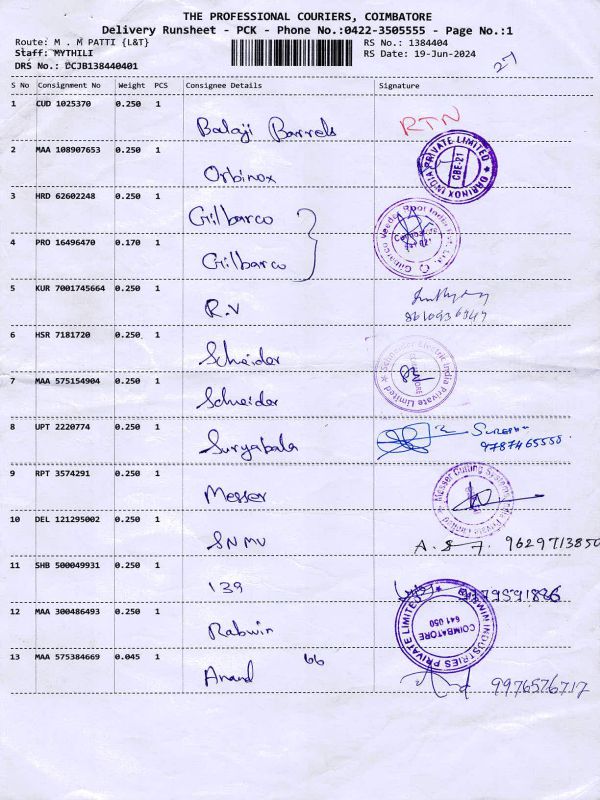 THE PROFESSIONAL COURIERS, COIMBATORE
Delivery Runsheet - PCK - Phone No.:0422-3505555 - Page No.:1
Route: M . M PATTI {L&T}
Staff: MYTHILI
DRS No.: DCJB138440401
RS No.: 1384404
RS Date: 19-Jun-2024
27
S No Consignment No Weight PCS Consignee Details Signature
1 CUD 1025370 0.250 1 Balaji Barrels RTN
2 MAA 108907653 0.250 1 Orbinox DARINOX INDIA PRIVATE LIMITED CBE-21
3 HRD 62602248 0.250 1 Gilbarco
4 PRO 16496470 0.170 1 Gilbarco Gilbarco Veeder Root India Pvt. Ltd. Coimbatore 641 021
5 KUR 7001745664 0.250 1 R.V
6 HSR 7181720 0.250 1 Scheider Schneider Electric India Private Limited
7 MAA 575154904 0.250 1 Schneider
8 UPT 2220774 0.250 1 Suryabala Suresh 9787465550
9 RPT 3574291 0.250 1 Messer Messer Cutting Systems India Private Limited
10 DEL 121295002 0.250 1 SNMV A. S 7. 9629713850
11 SHB 500049931 0.250 1 139
12 MAA 300486493 0.250 1 Rabwin RABWIN INDUSTRIES PRIVATE LIMITED COIMBATORE 641 050
13 MAA 575384669 0.045 1 Anand 66 9976576717